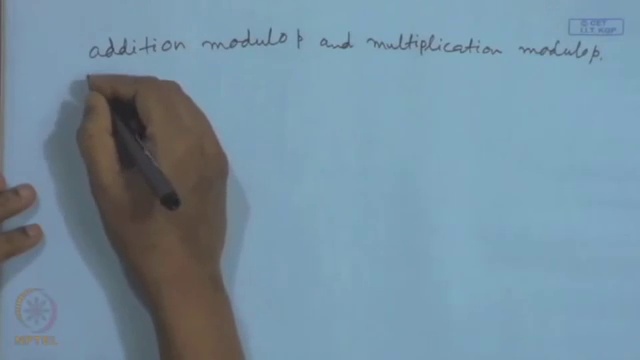 addition modulo p and multiplication modulo p.
© CET
I.I.T. KGP
NPTEL